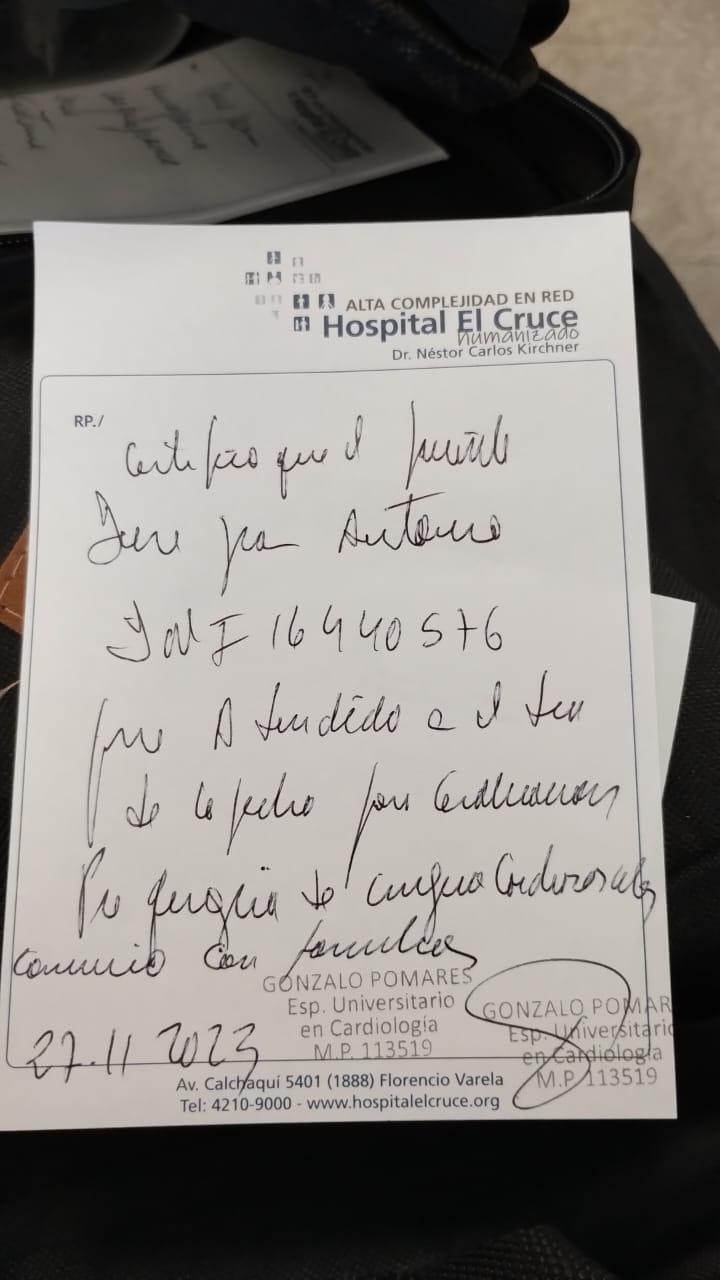 ALTA COMPLEJIDAD EN RED
Hospital El Cruce
humanizado
Dr. Néstor Carlos Kirchner
RP./
Certifico que el paciente
Juan Antonio
DNI 16440576
fue Atendido
de la fecha por
Pre de cirugía Cardiovascular
concurrió con familiar
GONZALO POMARES
Esp. Universitario
en Cardiología
M.P. 113519
GONZALO POMAR
Esp. Universitario
en Cardiología
M.P. 113519
27.11 2023
Av. Calchaquí 5401 (1888) Florencio Varela
Tel: 4210-9000 - www.hospitalelcruce.org